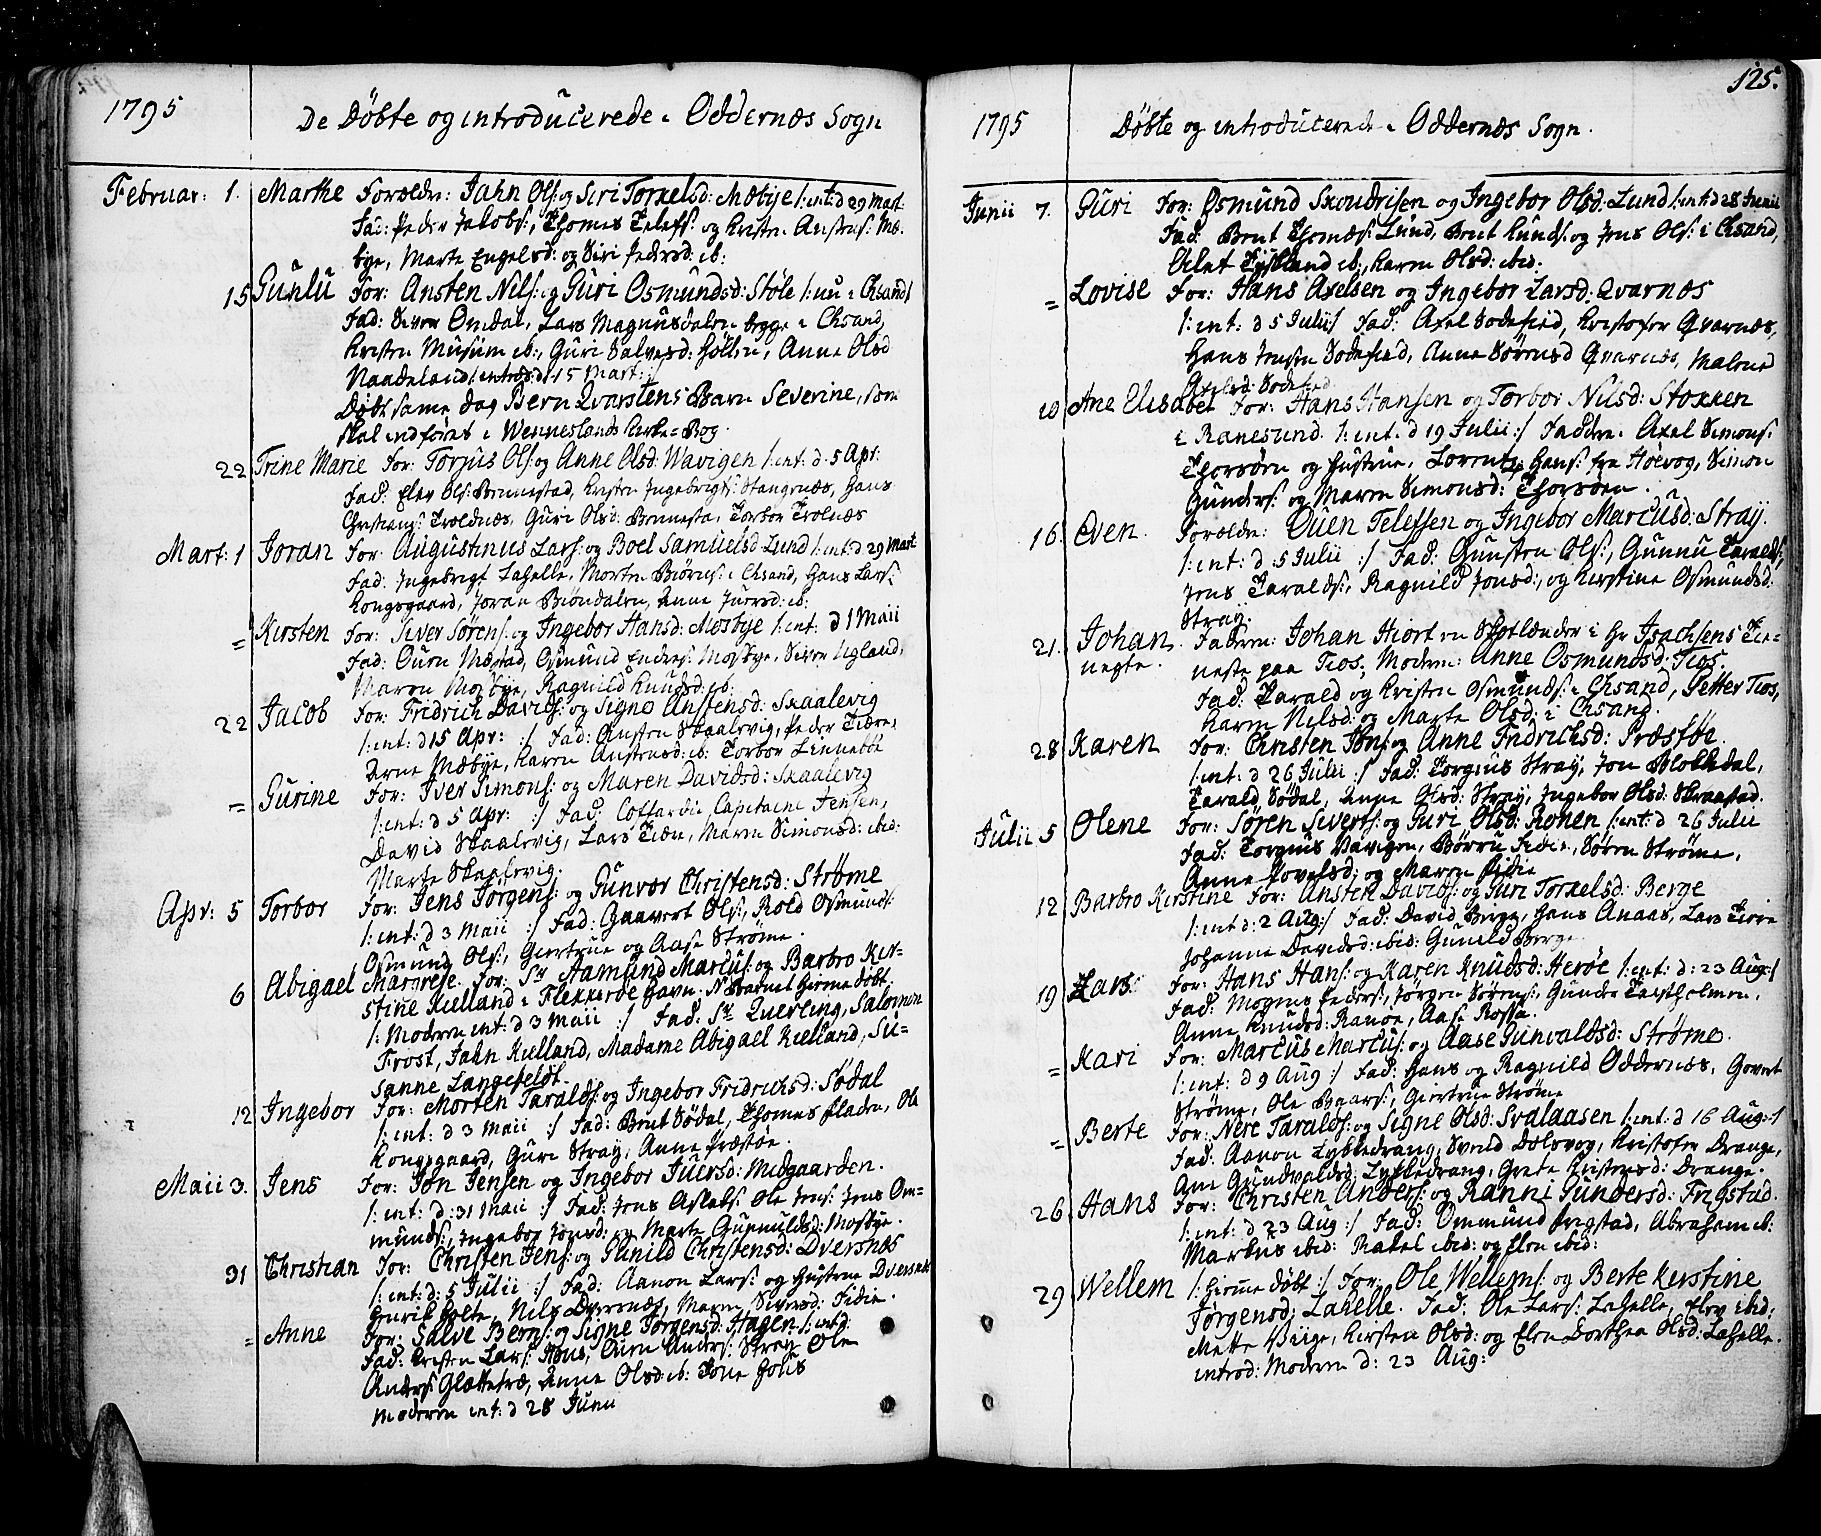 1795
De Døbte og introducerede i Oddernæs Sogn
Februar: 1. Marthe Forældr: Jahn Ols: og Siri Torkelsd: Mæbye /: int: d 29 Mart.
Fad: Peder Jakobs:, Thomes Telefs: og Kristen Anstens: Mæ-
bye, Marte Engelsd: og Siri Pedersd: ib:
15 Gunlu For: Ansten Nils: og Guri Osmundsd: Støle /: nu i Chsand /
Fad: Siver Omdal, Lars Magnus Dalen begge i Chsand,
Kristen Musum ib:, Guri Salvesd: Høllen, Anne Olsd
Naadeland /: introd: d 15 Mart: :/
Døbt samme dag Bern Qvarstens Barn Severine, som
skal indføres i Wenneslands Kirke-Bog.
22 Trine Marie For: Torjus Ols: og Anne Olsd: Wavigen /: int: d. 5 Apr:
Fad: Elev Ols: Bennestad, Kristen Ingebrigts: Stangenæs, Hans
Christians: Troldnæs, Guri Olsd: Bennesta, Torbor Trolnæs
Mart: 1 Joran For: Augustinus Lars: og Boel Samuelsd: Lund /: int: d 29 Mart
Fad: Ingebrigt Lahelle, Morten Biørns: i Chsand, Hans Lars:
Kongsgaard, Joran Biøndalen, Anne Juersd: ib:
= Kirsten For: Siver Sørens: og Ingebor Hansd: Mosbye /: int: d 1 Maii
Fad: Ouen Mæstad, Osmund Enders: Mosbye, Siver Ugland,
Maren Mosbye, Ragnild Knudsd: ib:
22 Jacob For: Fridrich Davids: og Signe Anstensd: Skaalevig
/: int: d 15 Apr: :/ Fad: Ansten Skaalevig, Peder
Arne Mæbye, Karen Anstensd: ib: Torbor Linnebøe
= Gurine For: Iver Simons: og Maren Davidsd: Skaalevig
/: int: d 5 Apr: :/ Fad: Coffardie Capitaine Jensen,
David Skaalevig, Lars Maren Simonsd: ibid:
Marte Skaalevig.
Apr: 5 Torbor For: Jens Jørgens: og Gunvor Christensd: Strøme
/: int: d 3 Maii :/ Fad: Gaavert Ols:, Rold Osmunds:
Osmund Ols:, Giertrue og Aase Strøme.
6 Abigael Margrete. For: Sr Aamund Marcus: og Barbro Kir-
stine Kielland i Flekkerøe Havn. N Barnet hiemmedøbt.
/: Moderen int: d 3 Maii :/ Fad: Sr Qverling, Salomon
Frost, Jahn Kielland, Madame Abigael Kielland, Su-
sanne Langefeldt.
12 Ingebor For: Morten Taralds: og Ingebor Fridrichsd: Sødal
/: int: d 3 Maii :/ Fad: Bent Sødal, Thomes Fladen, Ole
Kongsgaard, Guri Stray, Anne Præstøe.
Maii 3. Jens For: Jon Jensen og Ingebor Juersd: Midgaarden.
/: int: d: 31 Maii :/ Fad: Jens Aslaks: Ole Jens: Jens Om-
munds:, Ingebor Jensd: og Marte Gunnuldsd: Mosbye.
31 Christian For: Christen Jens: og Gunild Christensd: Dversnæs
/: int: d: 5 Julii :/ Fad: Aanon Lars: og Hustrue Dversnæs
Henrik Holte, Nils Dversnæs, Maren Siversd: Fidie.
= Anne For: Salve Berns: og Signe Jørgensd: Hagen /: int:
Fad: Kristen Lars: Ouen Anders: Stray Ole
Anders: Glattetræ, Anne Olsd: ib: Tone
Moderen int: d 28 Junii
125.
1795 Døbte og introducerede i Oddernæs Sogn.
Junii 7. Guri For: Osmund Skoudrisen og Ingebor Olsd: Lund /: int: d 28 Junii
Fad: Bent Thomæs: Lund, Bent Lunds: og Jens Ols: i Chsand,
Alet ib:, Karen Olsd: ibid:
= Lovise For: Hans Axelsen og Ingebor Larsd: Qvarnæs
/: int: d 5 Julii / Fad: Axel Sodefied, Kristofer Qvarnæs,
Hans Jensen Sodefied, Anne Sørensd Qvarnæs, Malene
Axelsd: Sodefied
10 Ane Elisabet For: Hans Hansen og Torbor Nilsd: Stokken
i Ranesund. /: int: d 19 Julii :/ Faddere: Axel Simons:
Thorsøen og Hustrue, Lorents Hans: fra Høevog, Simon
Gunders: og Maren Simonsd: Thorsøen.
16. Even. Forældr: Ouen Telefsen og Ingebor Marcusd: Stray.
/: int: d 5 Julii :/ Fad: Gunsten Ols:, Gunnu Taralds:,
Jens Taralds:, Ragnild Jensd:, og Kirstine Osmundsd:
Stray.
21. Johan Faderen: Johan Hiort en Skotlænder i Hr Isachsens Tie-
uegte. neste paa Tios, Moderen: Anne Osmundsd: Tios.
Fad: Tarald og Kristen Osmunds: i Chsand, Petter Tios,
Karen Nilsd: og Marte Olsd: i Chsand.
28 Karen For: Christen Jens: og Anne Fridrichsd: Præstøe.
/: int: d 26 Julii :/ Fad: Torgius Stray, Jon
Tarald Sødal, Anne Olsd: Stray, Ingebor Olsd: Straastad.
Julii 5 Olene For: Søren Siverts: og Guri Olsd: Ronen /: int: d 26 Julii
Fad: Torgius Vavigen, Børru Fidie, Søren Strøme,
Anne og Maren Fidie
12 Barbro Kirstine For: Ansten Davids: og Guri Torkelsd: Berge
/: int d: 2 Aug: / Fad: David Berge, Hans Anaas, Lars
Johanne Davidsd: ibid: Gunild Berge
19 Lars For: Hans Hans: og Karen Knudsd: Herøe /: int: d: 23 Aug: /
Fad: Mogens Peders:, Jørgen Sørens:, Gunder
Anne Knudsd: Ranøe, Aase Rossø.
= Kari For: Marcus Marcus: og Aase Gunvaldsd: Strøme.
/: int: d 9 Aug :/ Fad: Hans og Ragnild Oddernæs, Govert
Strøme, Ole Baars:, Giertrue Strøme
= Berte For: Nere Taralds: og Signe Olsd: Svalaasen /: int: d 16 Aug: /
Fad: Aanon Lykkedrang, Svend Dolsvog, Kristofer Drange,
Ane Gundvaldsd: Lykkedrang, Grete Kristensd: Drange.
26. Hans For: Christen Anders: og Ranni Gundersd: Frigstad.
/: int: d 23 Aug :/ Fad: Ommund Frigstad, Abraham ib:
Markus ibid: Rakel ibid: og Elen ibid:
29 Wellem /: Hiemedøbt :/ For: Ole Wellems: og Berte Kirstine
Jørgensd: Lahelle. Fad: Ole Lars: Lahelle, Elev ibid:
Mette Viige, Kirsten Olsd: og Elen Dorthea Olsd: Lahelle.
introd: Moderen d: 23 Aug: